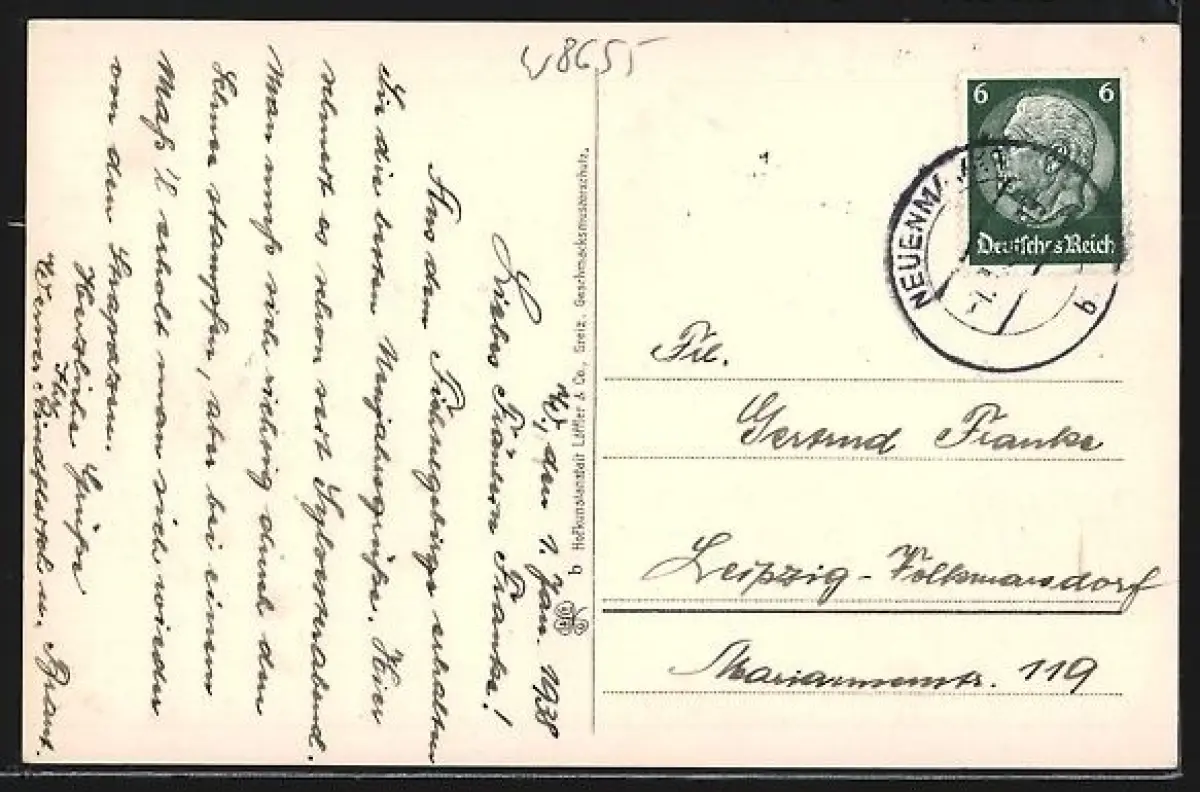 W8655
W., den 1. Jan. 1938
Liebes Fräulein Franke!
Aus dem Fichtelgebirge erhalten
Sie die besten Neujahrsgrüße. Hier
schneit es schon seit Sylvesterabend.
Man muß sich richtig durch den
Schnee stampfen, aber bei einem
Maß'l erholt man sich wieder
von den Strapazen.
Herzliche Grüße
Ihr
Werner u. Braut.
b Hofkunstanstalt Löffler & Co., Greiz. Geschmacksmusterschutz.
6 6
Deutsches Reich
NEUENM
b
Frl.
Gertrud Franke
Leipzig-Volkmarsdorf
Mariannenstr. 119